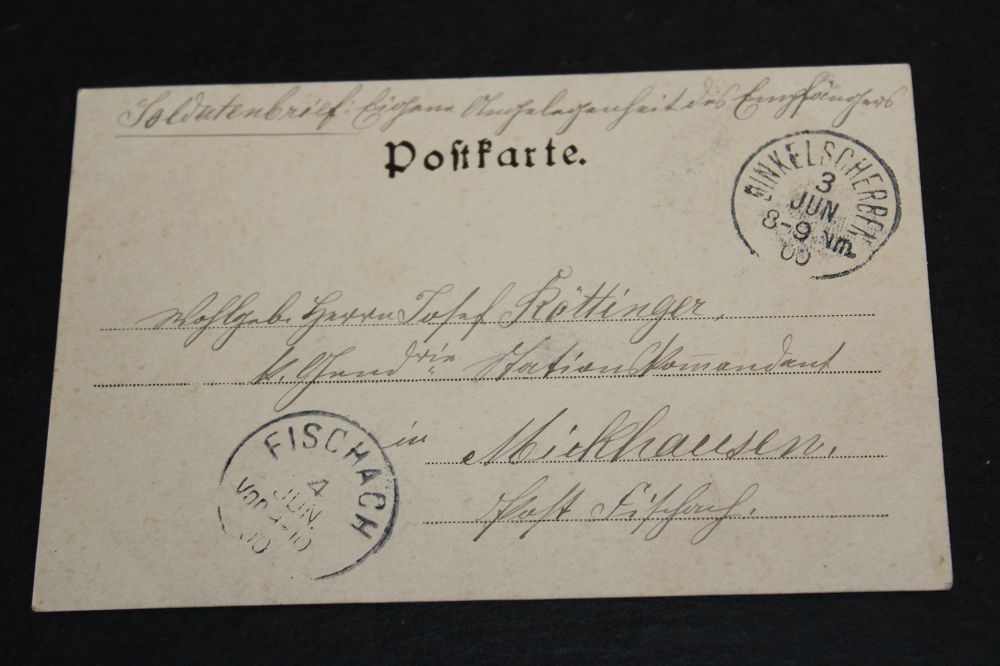 Soldatenbrief: Eigene Angelegenheit des Empfängers
Postkarte.
DINKELSCHERBEN
3
JUN
8-9 Nm.
00
Wohlgeb. Herrn Josef Köttinger,
k. Gend.rie Stations Kommandant
in Mickhausen,
Post Fischach.
FISCHACH
4
JUN.
VOR 9-10
00